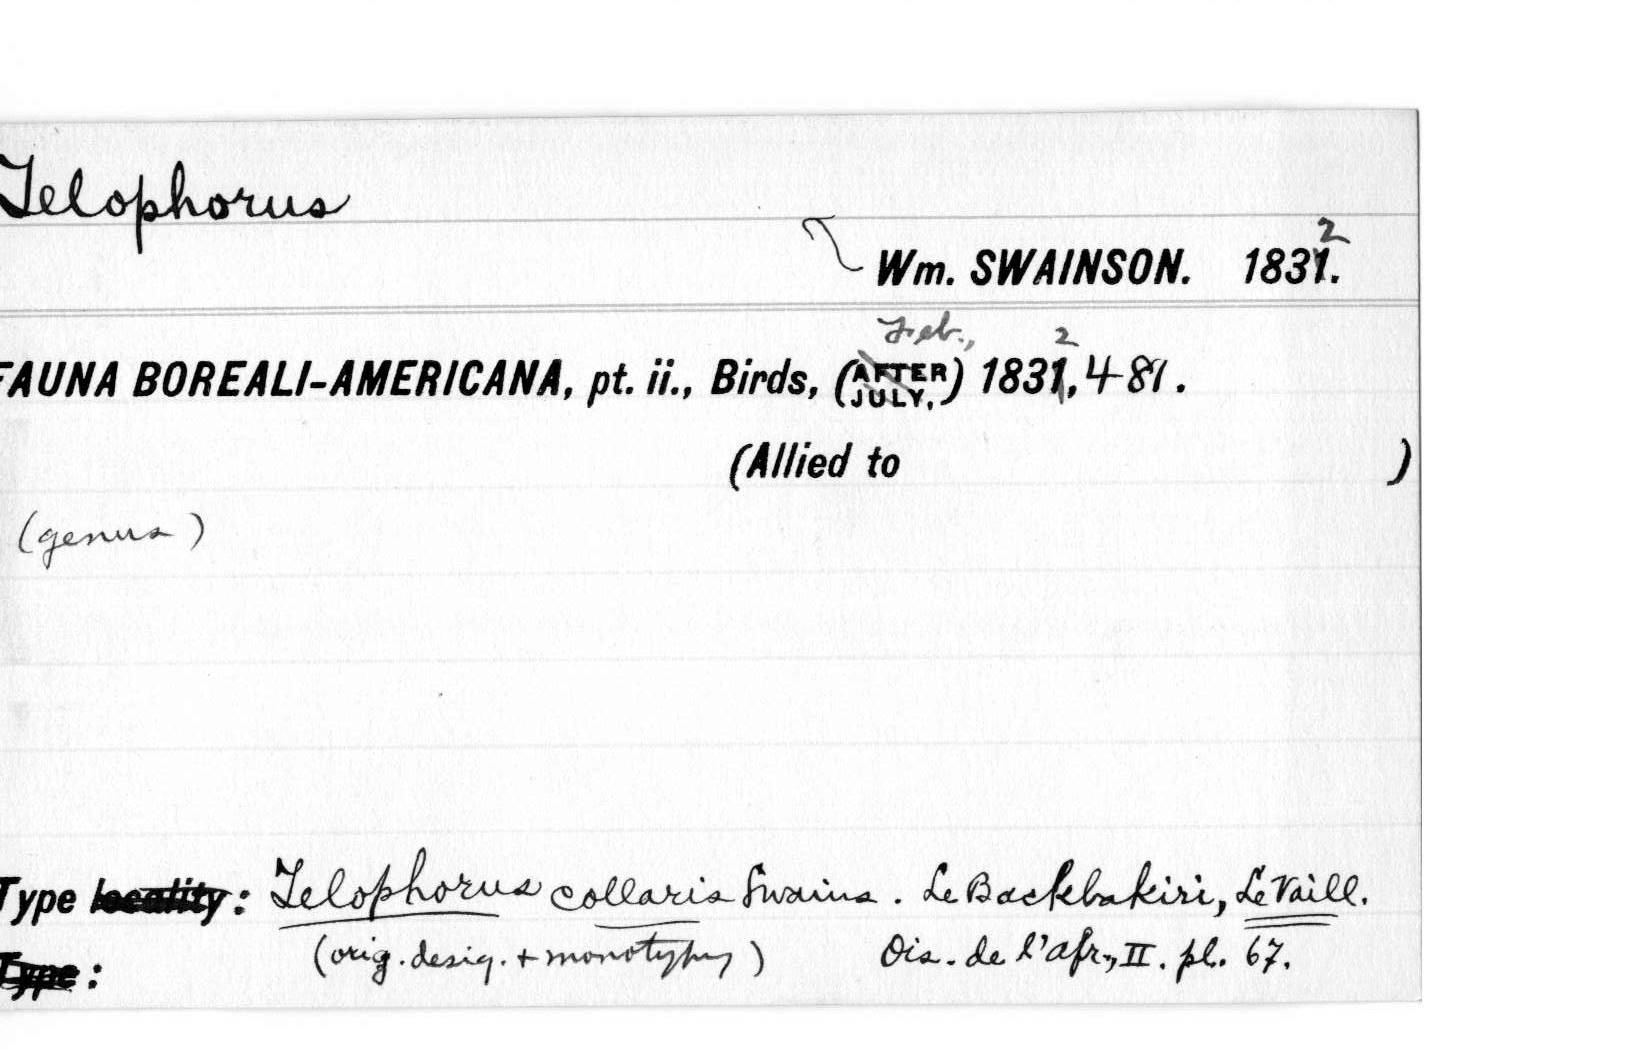 Telophorus
Wm. SWAINSON. 1831.2
FAUNA BOREALI-AMERICANA, pt. ii., Birds, (AFTER JULY,) Feb., 1831,2 481.
(Allied to )
(genus)
Type locality: Telophorus collaris Swains. Le Backbakiri, Le Vaill.
(orig. desig. + monotypy) Ois. de l'Afr., II. pl. 67.
Type: